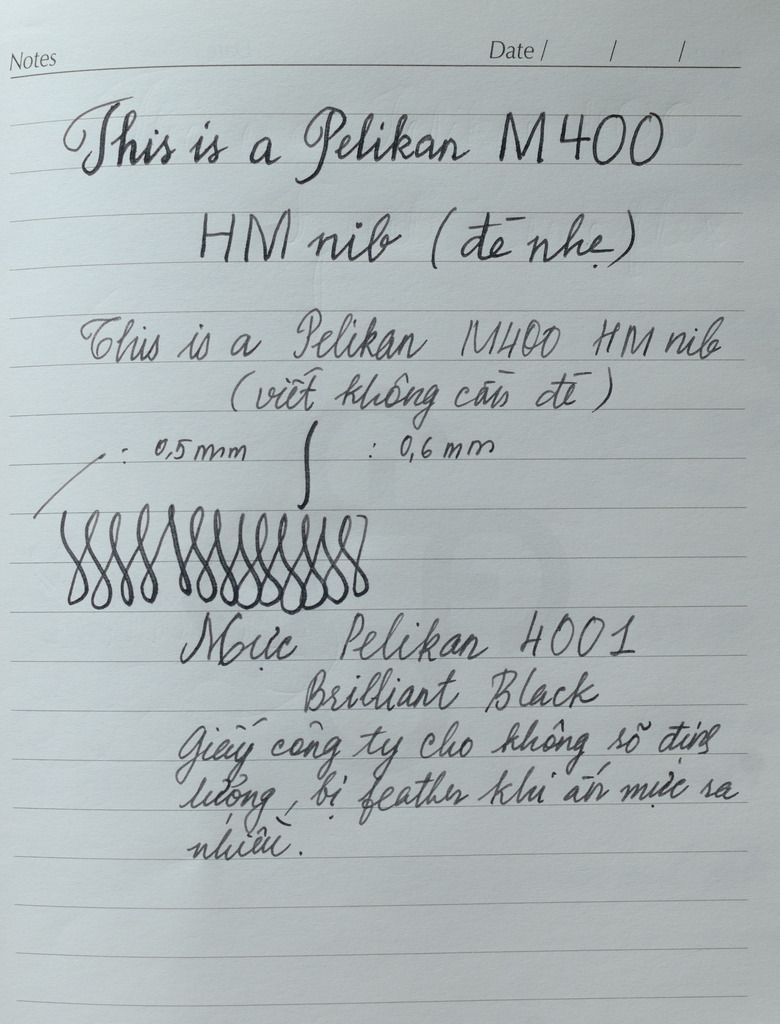 Notes Date / / /
This is a Pelikan M400
HM nib (đè nhẹ)
This is a Pelikan M400 HM nib
(viết không cần đè)
: 0,5 mm : 0,6 mm
Mực Pelikan 4001
Brilliant Black
Giấy công ty cho không rõ định
lượng, bị feather khi ấn mực ra
nhiều.